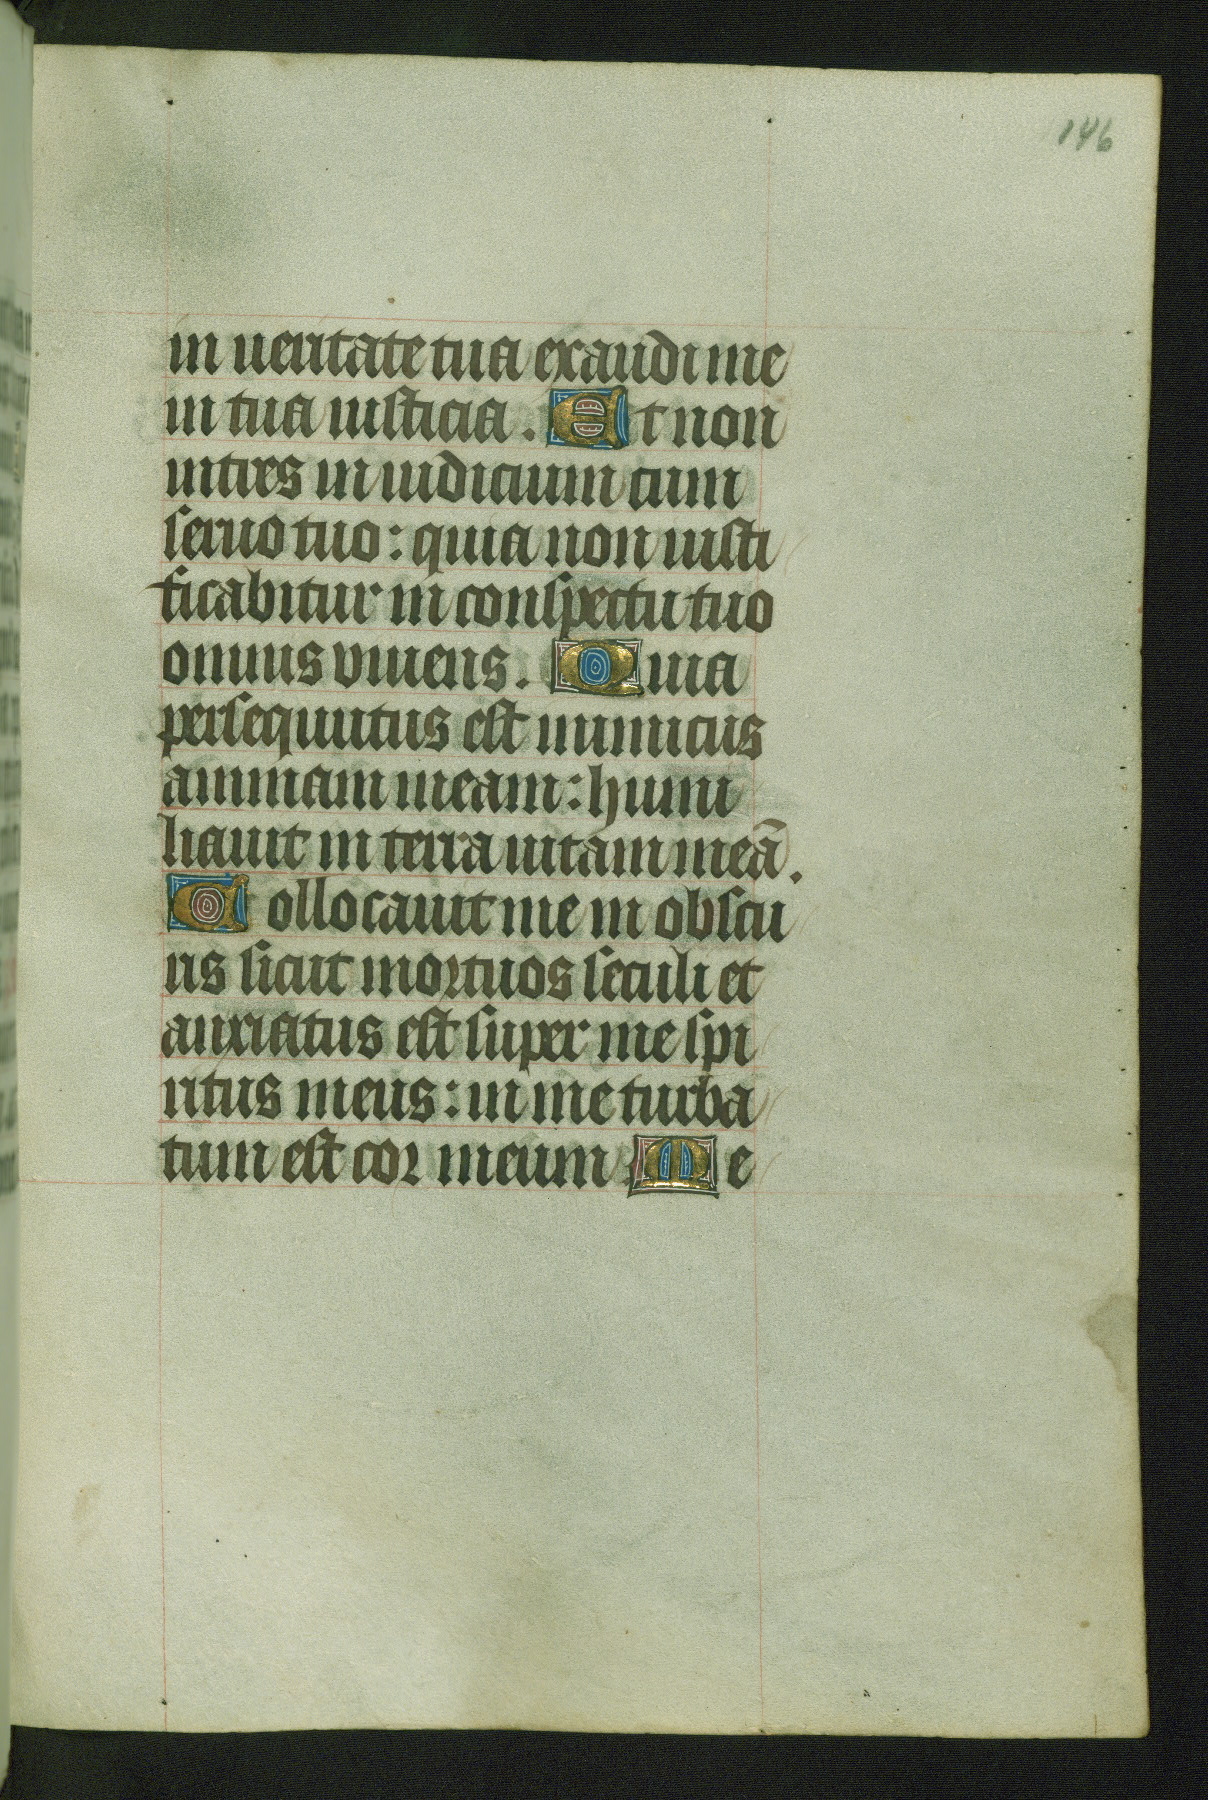 146
in ueritate tua exaudi me
in tua iusticia. Et non
intres in iudicium cum
seruo tuo: quia non iusti
ficabitur in conspectu tuo
omnis viuens. Quia
persequutus est inimicus
animam meam: humi
liauit in terra uitam meā.
Collocauit me in obscu
ris sicut mortuos seculi et
anxiatus est super me spi
ritus meus: in me turba
tum est cor meum. Me